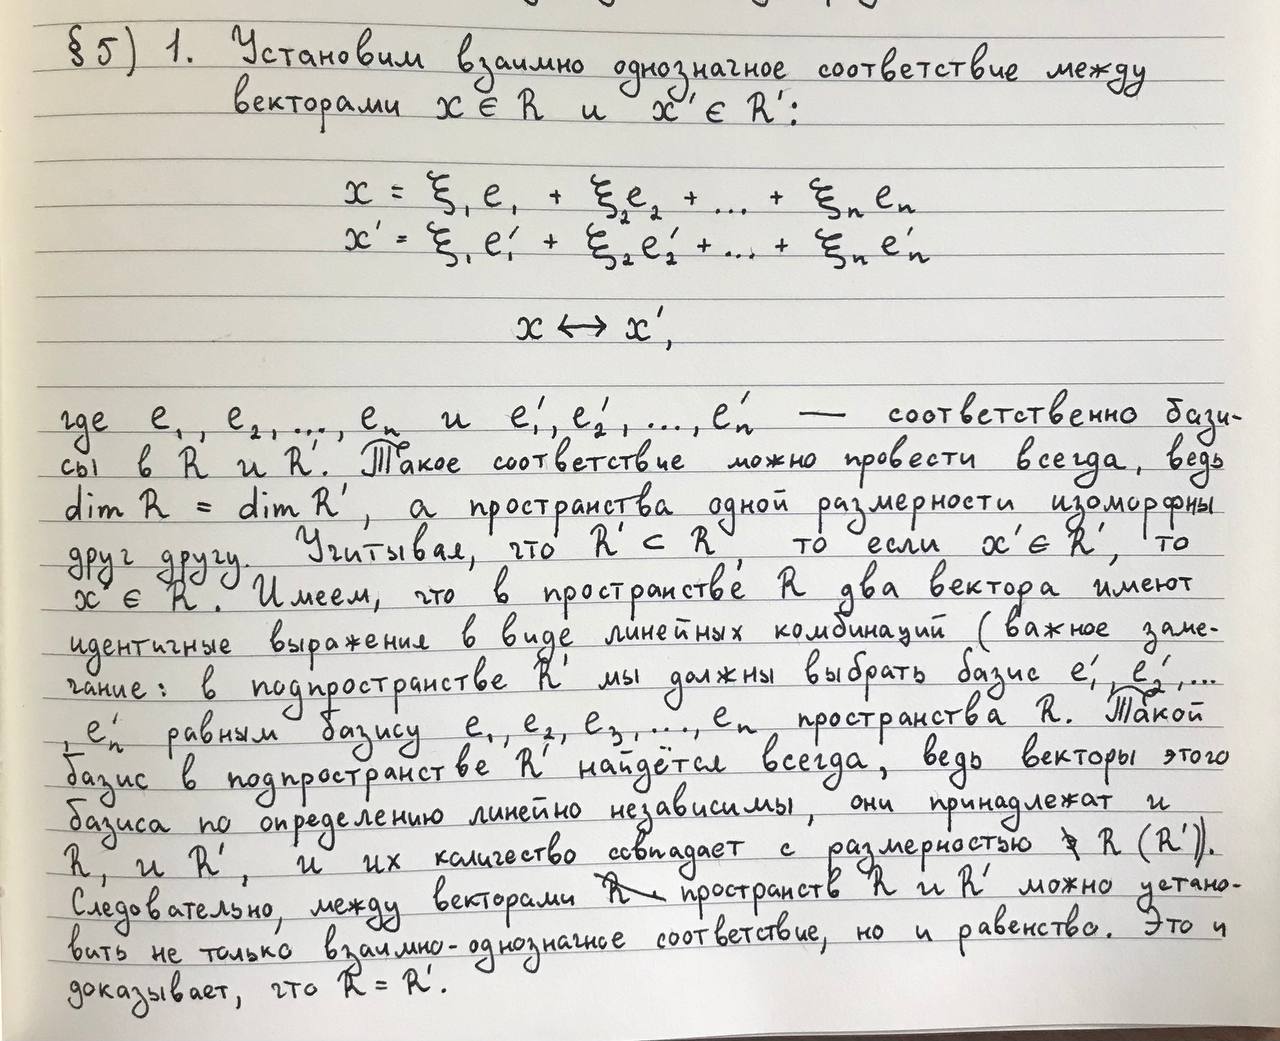 §5) 1. Установим взаимно однозначное соответствие между
векторами x ∈ R и x' ∈ R':
x = ξ₁e₁ + ξ₂e₂ + ... + ξₙeₙ
x' = ξ₁e₁' + ξ₂e₂' + ... + ξₙeₙ'
x ↔ x',
где e₁, e₂, ..., eₙ и e₁', e₂', ..., eₙ' — соответственно бази-
сы в R и R'. Такое соответствие можно провести всегда, ведь
dim R = dim R', а пространства одной размерности изоморфны
друг другу. Учитывая, что R' ⊂ R, то если x' ∈ R', то
x' ∈ R. Имеем, что в пространстве R два вектора имеют
идентичные выражения в виде линейных комбинаций (важное заме-
чание: в подпространстве R' мы должны выбрать базис e₁', e₂', ...
, eₙ' равным базису e₁, e₂, e₃, ..., eₙ пространства R. Такой
базис в подпространстве R' найдётся всегда, ведь векторы этого
базиса по определению линейно независимы, они принадлежат и
R, и R', и их количество совпадает с размерностью R (R')).
Следовательно, между векторами пространств R и R' можно устано-
вить не только взаимно-однозначное соответствие, но и равенство. Это и
доказывает, что R = R'.